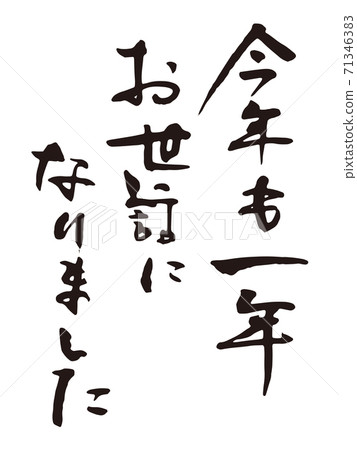 今年も一年
お世話に
なりました
PIXTA
71346383